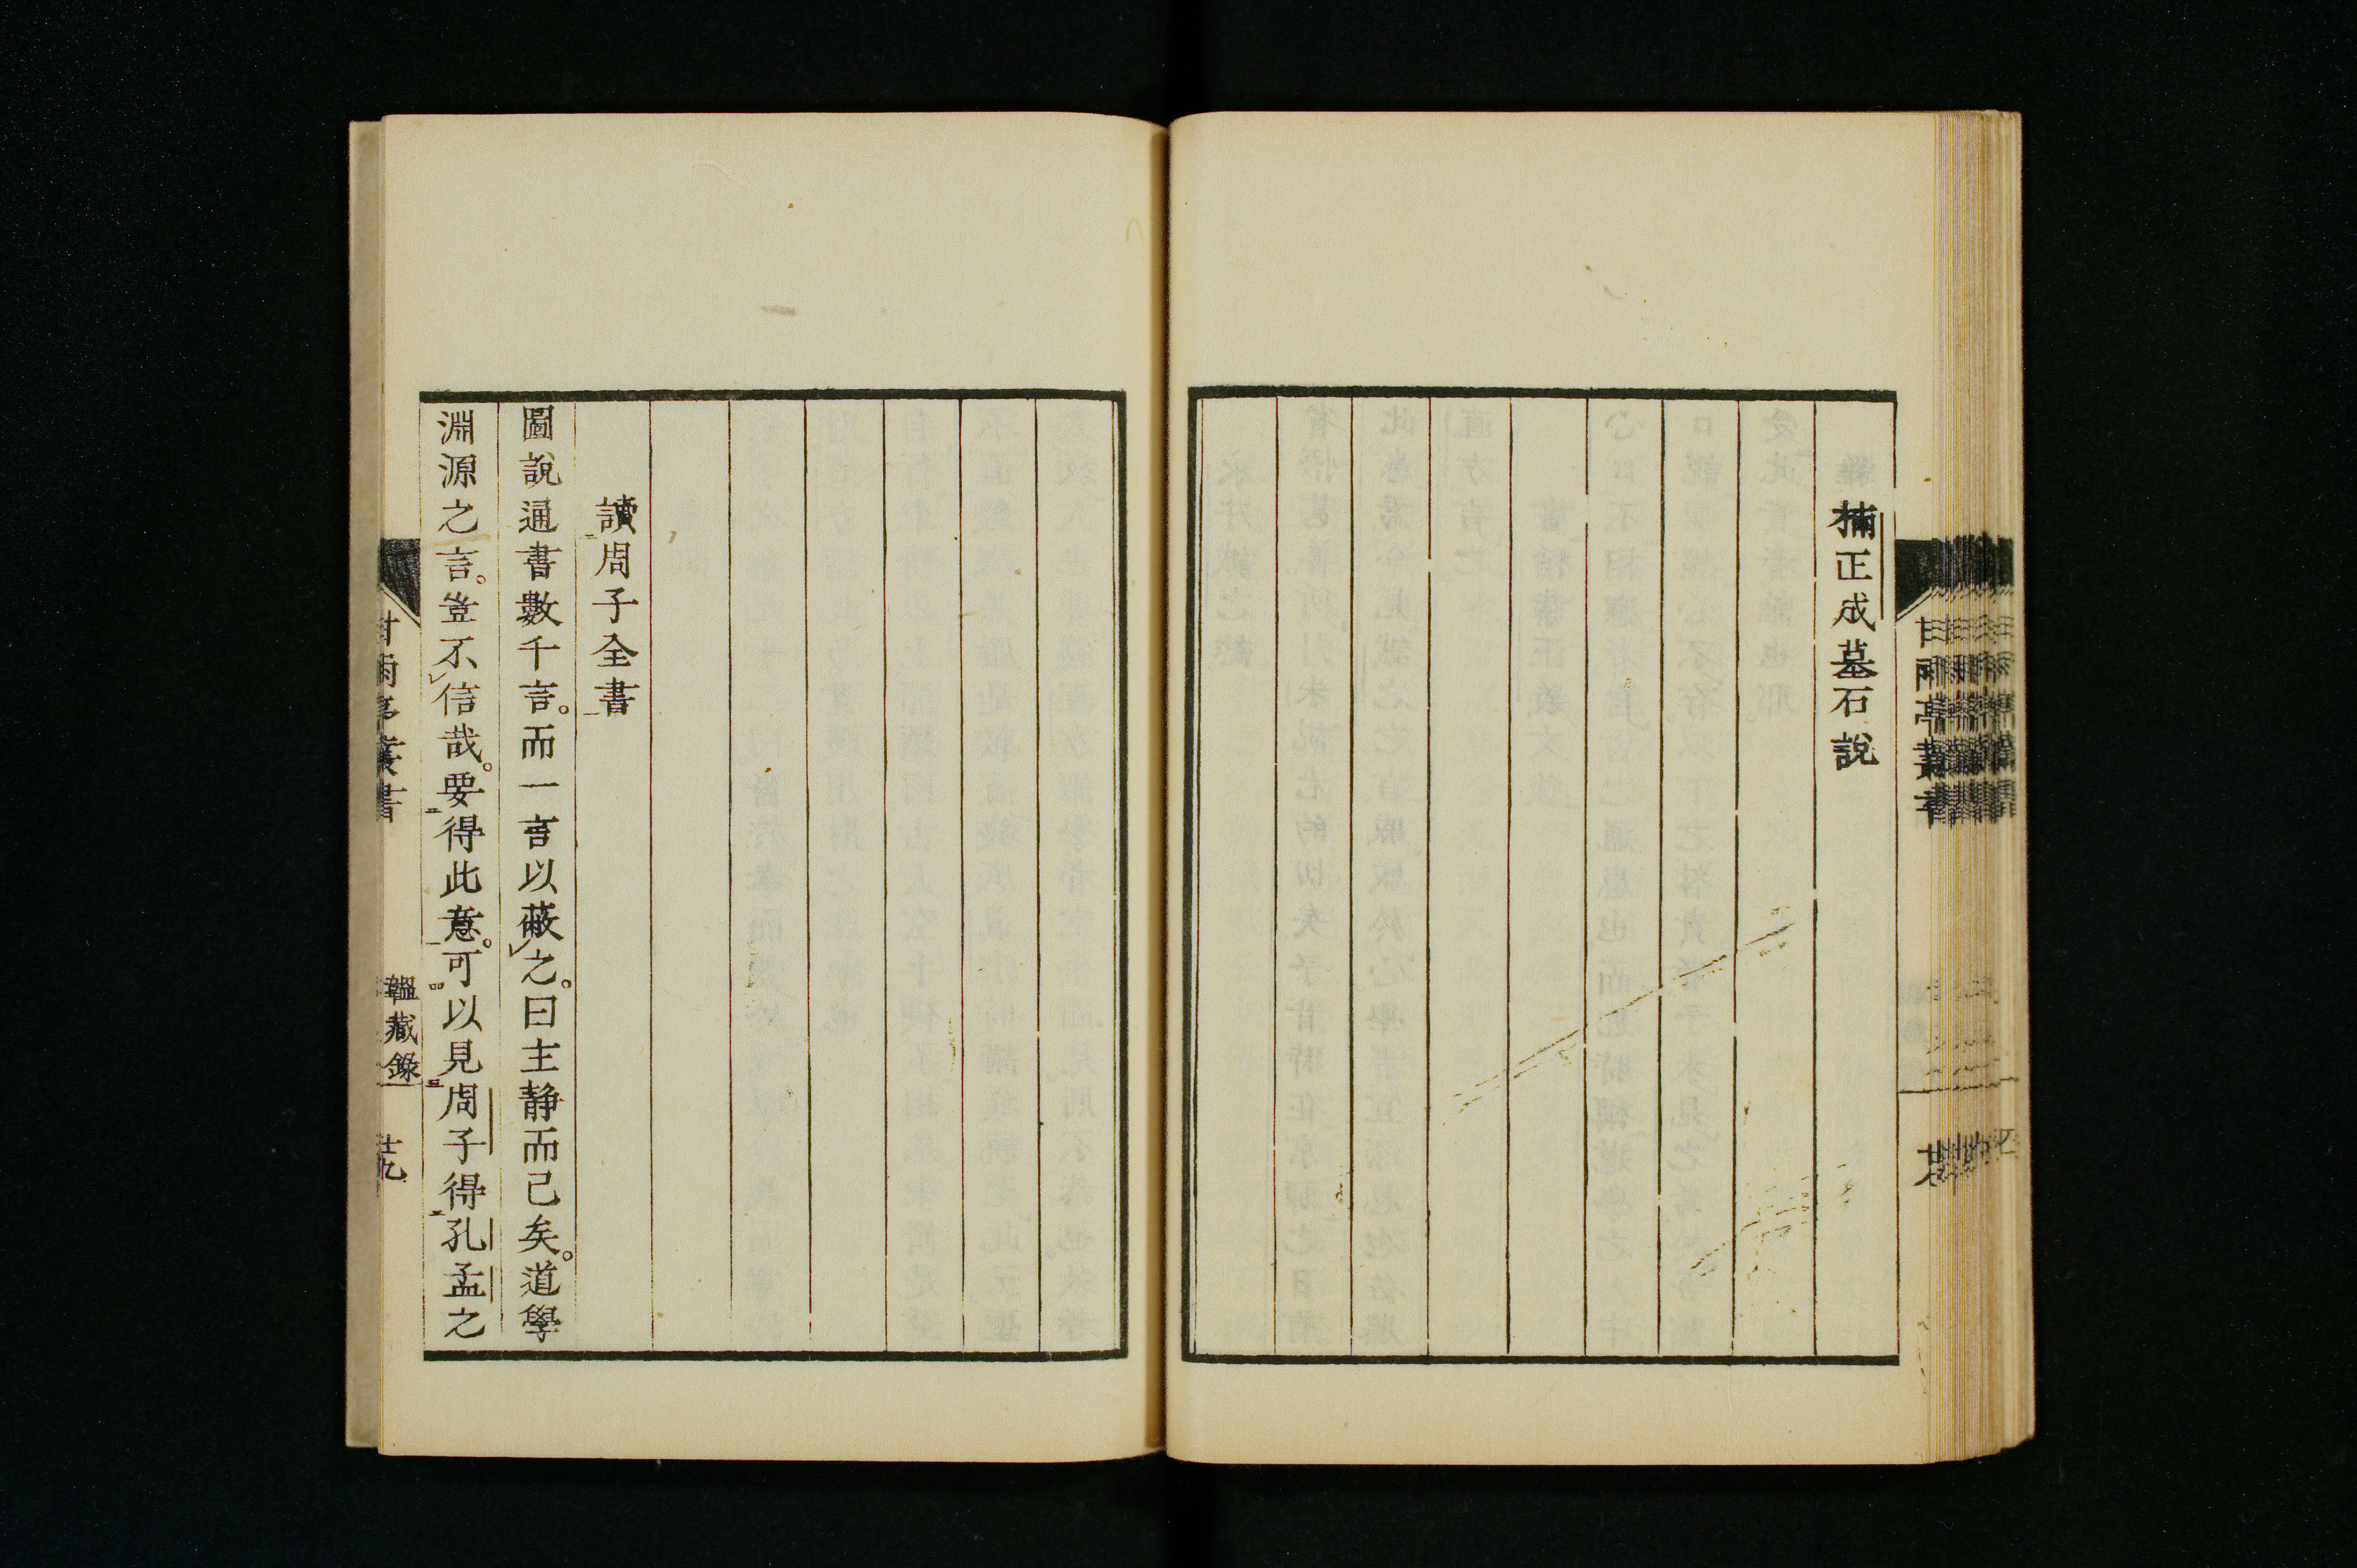 楠正成墓石說
讀周子全書
圖說通書數千言。而一言以蔽之。曰主靜而已矣。道學
淵源之言。豈不信哉。要得此意。可以見周子得孔孟之
甘雨亭叢書
韞藏錄
甘雨亭叢書